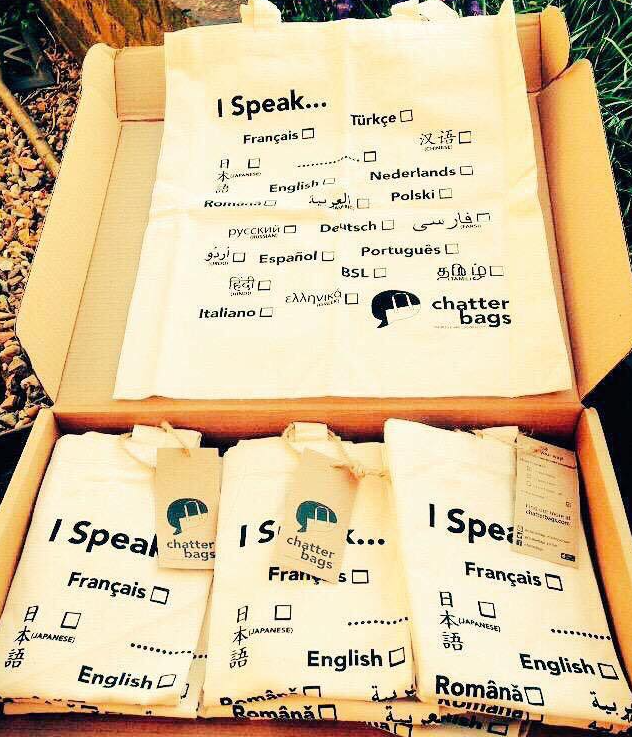 I Speak...
Türkçe
Français
汉语
(CHINESE)
日本語
(JAPANESE)
Nederlands
English
Polski
Română
العربية
русский
(RUSSIAN)
Deutsch
فارسی
(FARSI)
اُردُو
(URDU)
Español
Português
BSL
தமிழ்
(TAMIL)
हिंदी
(HINDI)
ελληνικά
(GREEK)
Italiano
chatter
bags
I Speak
Français
日本語
(JAPANESE)
English
chatter
bags
I S
...
Français
日本語
(JAPANESE)
English
Română
Română
chatter
bags
I Spea
Français
日本語
(JAPANESE)
English
Română
Find out more at
chatterbags.com